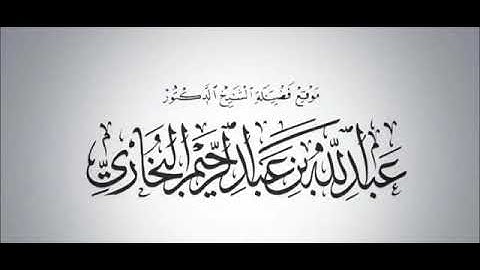 موقع فضيلة الشيخ الدكتور
عبد الله بن عبد الرحيم البخاري